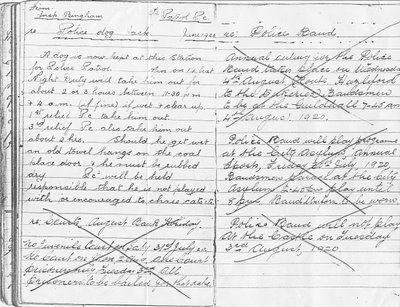 From
Insp. Bingham
To Patrol Pc.
re Police dog Jack. June 1920
A dog is now kept at this Station
for Police Patrol
Night Duty will take him out for
about 2 or 3 hours between 11-30 pm
& 4 a.m. (if fine) if wet & clear up.
1st relief Pc take him out.
3rd relief Pc also take him out
about 2 hrs. Should he get wet
an old towel hangs on the coal
place door & he must be rubbed
dry. Pc will be held
responsible that he is not played
with or encouraged to chase cats etc
re Courts August Bank Holiday.
No Juvenile Court Saty 31st July
No Court on Mon 2 Aug.
Tuesday 3rd. All
Prisoners to be bailed
re Police Band
Annual outing for the Police
Band takes place on Wednesday
4th August
to the
Bandsmen
to be at the Guildhall 7-45 am
4th August, 1920.
Police Band will play programe
at the City Asylum Annual
Sports Friday July, 1920
Bandsmen parade at the City
Asylum 2-40 pm play until
8 pm. Band Uniform to be worn.
Police Band will not play
at the Castle on Tuesday
3rd August, 1920.